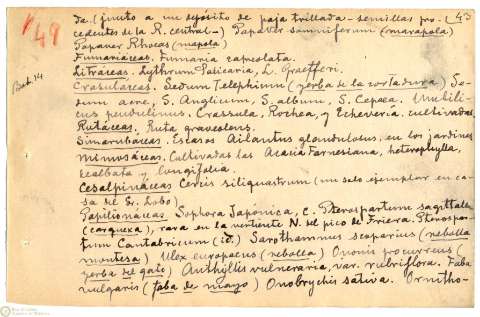 49
43
da. (junto a un depósito de paja trillada - semillas pro-
cedentes de la R. central -) Papaver somniferum (marapola)
Papaver Rhoeas (mapola)
Fumariáceas. Fumaria capreolata.
Litráceas. Lythrum Salicaria, L. Graefferi.
Crasuláceas. Sedum Telephium (yerba de la cortadura) Se-
dum acre, S. Anglicum, S. album, S. Cepaea. Umbili-
cus pendulinus. Crassula, Rochea, y Echeveria, cultivadas
Rutáceas. Ruta graveolens.
Simarubáceas. Escasos Ailantus glandulosus, en los jardines
Mimosáceas. Cultivadas las Acacia Farnesiana, heterophylla,
dealbata y longifolia.
Cesalpináceas Cercis siliquastrum (un solo ejemplar en ca-
sa de Sr. Lobo)
Papilionáceas Sophora Japónica, C. Pterospartum sagittale
(carquexa), rara en la vertiente N. del pico de Friera. Pterospar-
tum Cantabricum (id.) Sarothamnus scoparius (rebolla
montesa) Ulex europaeus (rebolla) Ononis procurrens (
yerba de gato) Anthyllis vulneraria, var. rubriflora. Faba
vulgaris (faba de mayo) Onobrychis sativa. Ornitho-